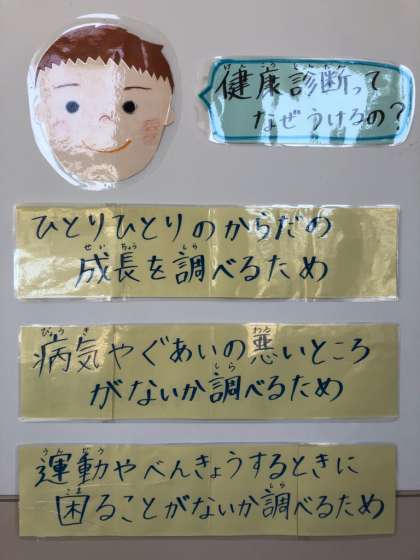 健康診断って
なぜうけるの？
ひとりひとりのからだの
成長を調べるため
病気やぐあいの悪いところ
がないか調べるため
運動やべんきょうするときに
困ることがないか調べるため